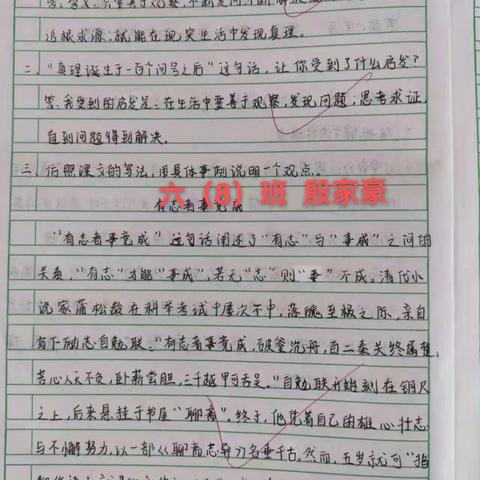 答：含义：只要善于观察，不断发问，不断解决疑
追根求源，就能在现实生活中发现真理。
二、"真理诞生于一百个问号之后"这句话，让你受到了什么启发？
答：我受到的启发是：在生活中要善于观察，发现问题，思考求证，
直到问题得到解决。
三、仿照课文的写法，用具体事例说明一个观点。
六（8）班 殷家豪
有志者事竟成
"有志者事竟成"这句话阐述了"有志"与"事成"之间的
关系，"有志"才能"事成"，若无"志"则"事"不成。清代小
说家蒲松龄在科举考试中屡次不中，落魄至极之际，亲自
写下励志自勉联："有志者事竟成，破釜沉舟，百二秦关终属楚；
苦心人天不负，卧薪尝胆，三千越甲可吞吴。"自勉联开始刻在铜尺
之上，后来悬挂于书屋"聊斋"。终于，他凭着自己的雄心壮志
与不懈努力，以一部《聊斋志异》名垂千古。然而，五岁就可"指